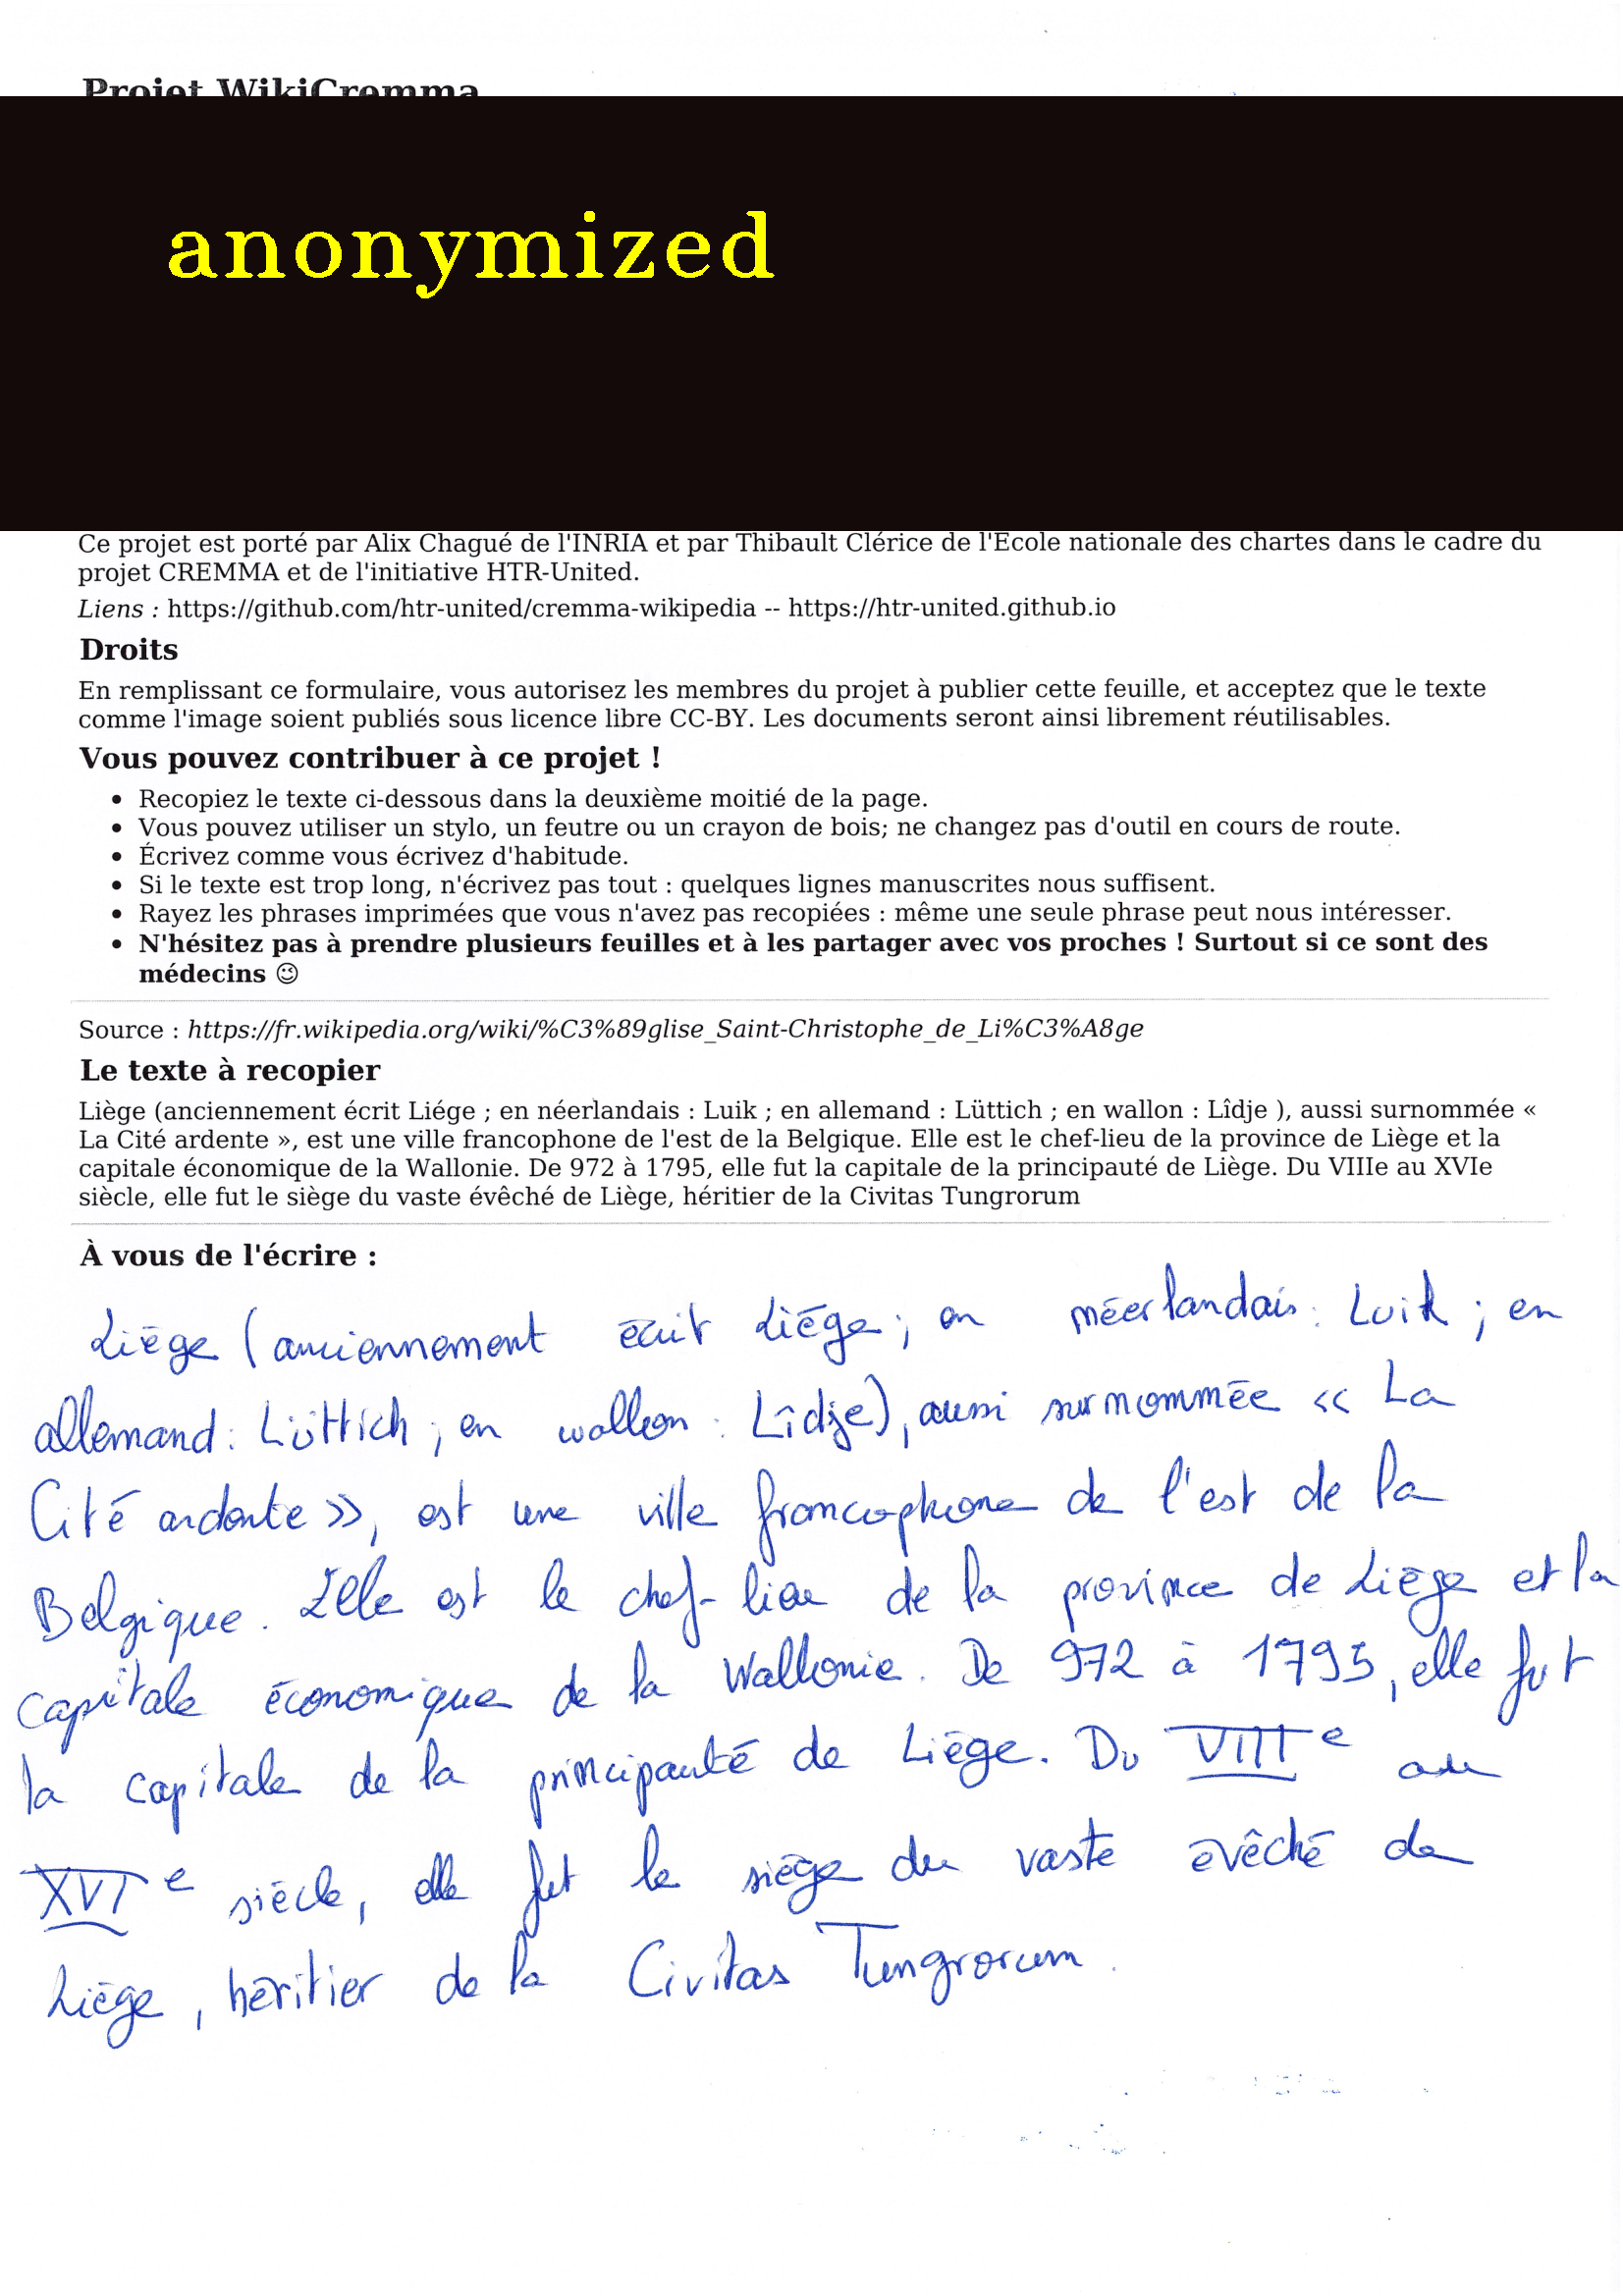 Projet WikiCremma
anonymized
Ce projet est porté par Alix Chagué de l'INRIA et par Thibault Clérice de l'École nationale des chartes dans le cadre du
projet CREMMA et de l'initiative HTR-United.
Liens : https://github.com/htr-united/cremma-wikipedia -- https://htr-united.github.io
Droits
En remplissant ce formulaire, vous autorisez les membres du projet à publier cette feuille, et acceptez que le texte
comme l'image soient publiés sous licence libre CC-BY. Les documents seront ainsi librement réutilisables.
Vous pouvez contribuer à ce projet !
• Recopiez le texte ci-dessous dans la deuxième moitié de la page.
• Vous pouvez utiliser un stylo, un feutre ou un crayon de bois; ne changez pas d'outil en cours de route.
• Écrivez comme vous écrivez d'habitude.
• Si le texte est trop long, n'écrivez pas tout : quelques lignes manuscrites nous suffisent.
• Rayez les phrases imprimées que vous n'avez pas recopiées : même une seule phrase peut nous intéresser.
• N'hésitez pas à prendre plusieurs feuilles et à les partager avec vos proches ! Surtout si ce sont des
médecins 😉
Source : https://fr.wikipedia.org/wiki/%C3%89glise_Saint-Christophe_de_Li%C3%A8ge
Le texte à recopier
Liège (anciennement écrit Liége ; en néerlandais : Luik ; en allemand : Lüttich ; en wallon : Lîdje ), aussi surnommée «
La Cité ardente », est une ville francophone de l'est de la Belgique. Elle est le chef-lieu de la province de Liège et la
capitale économique de la Wallonie. De 972 à 1795, elle fut la capitale de la principauté de Liège. Du VIIIe au XVIe
siècle, elle fut le siège du vaste évêché de Liège, héritier de la Civitas Tungrorum
À vous de l'écrire :
Liège (anciennement écrit Liége ; en néerlandais : Luik ; en
allemand : Lüttich ; en wallon : Lîdje), aussi surnommée « La
Cité ardente », est une ville francophone de l'est de la
Belgique. Elle est le chef-lieu de la province de Liège et la
capitale économique de la Wallonie. De 972 à 1795, elle fut
la capitale de la principauté de Liège. Du VIIIe au
XVIe siècle, elle fut le siège du vaste évêché de
Liège, héritier de la Civitas Tungrorum.